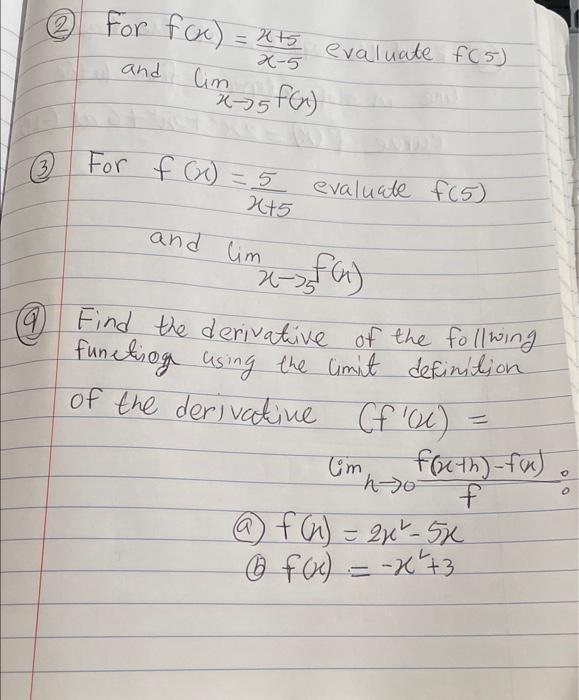 ② For f(x) = x+5/x-5 evaluate f(5)
and lim x→5 f(x)
③ For f(x) = 5/x+5 evaluate f(5)
and lim x→5 f(x)
④ Find the derivative of the follwing
function using the limit definition
of the derivative (f'(x) =
lim h→0 f(x+h)-f(x)/f :
ⓐ f(x) = 2x²-5x
ⓑ f(x) = -x²+3